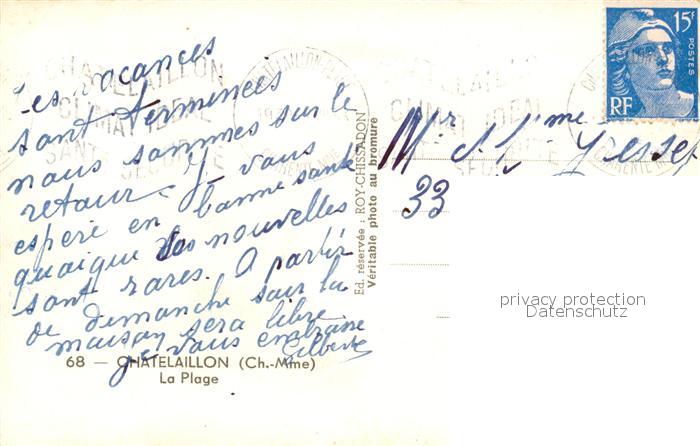 Les vacances
sont terminées
nous sommes sur le
retour. Je vous
espère en bonne santé
quoique vos nouvelles
sont rares. A partir
de dimanche soir la
maison sera libre
je vous embrasse
Gilberte
68 — CHATELAILLON (Ch.-Mme)
La Plage
Ed. réservée : ROY-CHISSADON
Véritable photo au bromure
CHATELAILLON
CLIMAT IDEAL
SANTE
SECURITE
15F
POSTES
RF
Mr et Mme
33
privacy protection
Datenschutz